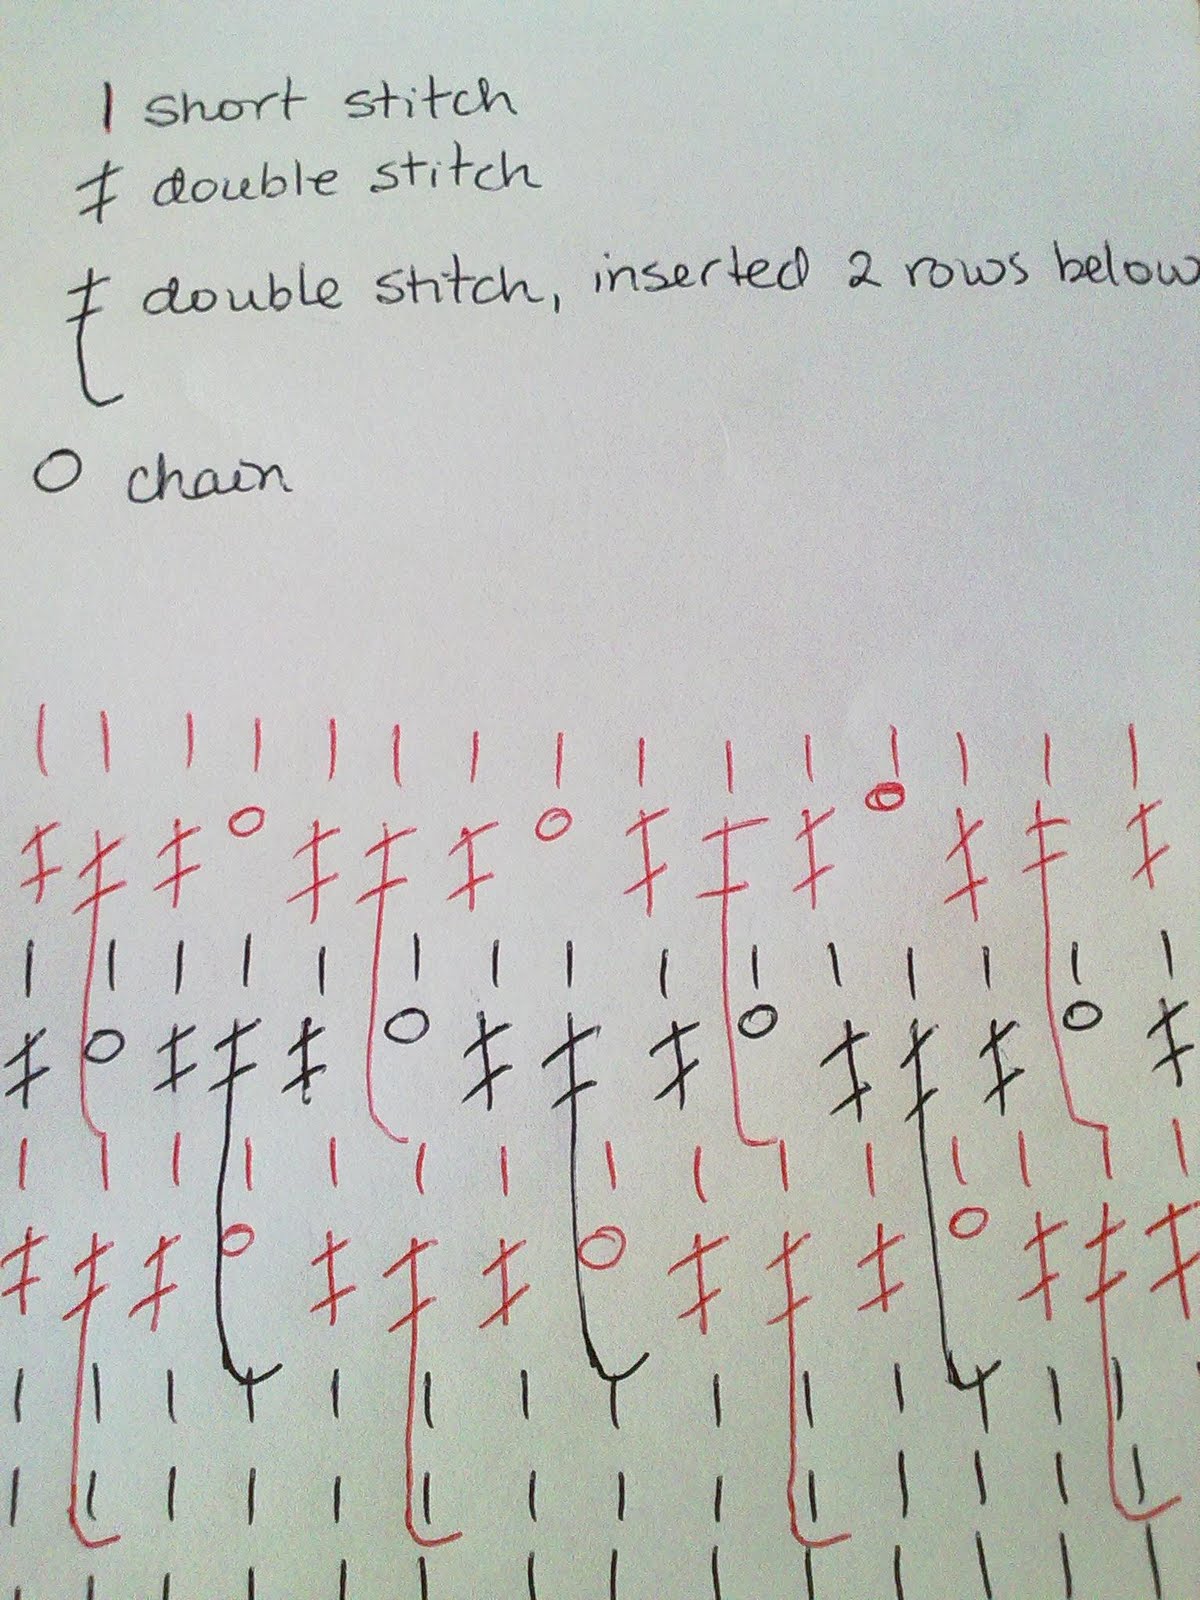 short stitch
double stitch
double stitch, inserted 2 rows below
chain